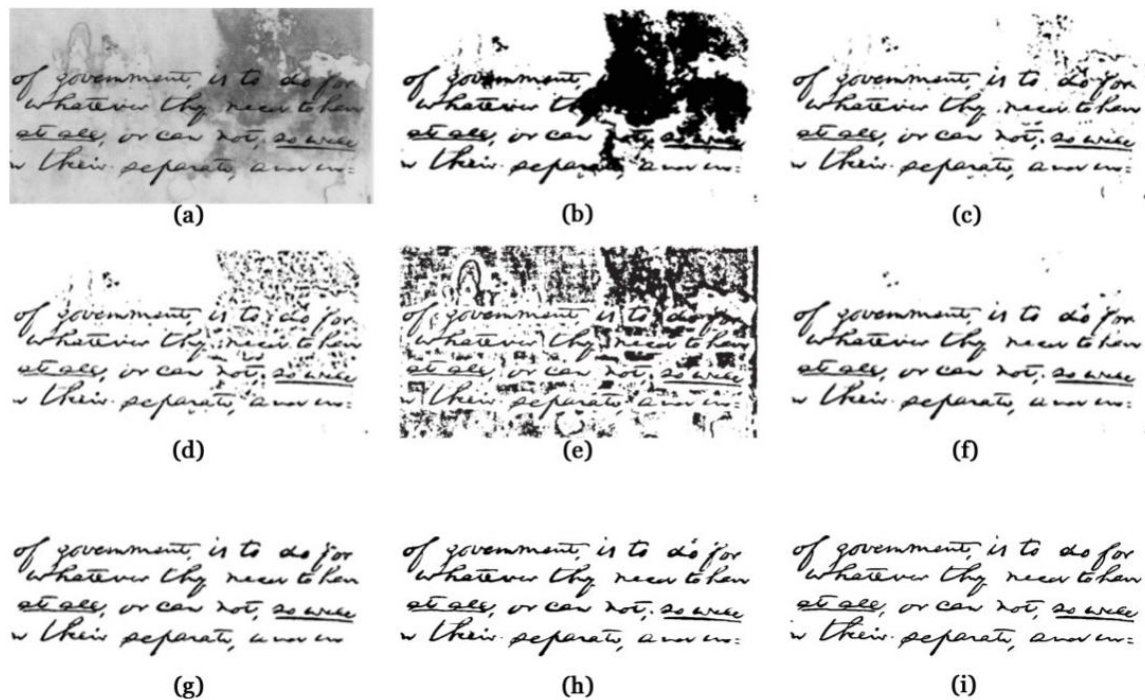 of government, is to do for
whatever they need to have
at all, or can not, so well
their separate, and in=
(a)
of government,
whatever
at all, or can not, so well
their separate, and in=
(b)
of government, is to do for
whatever they need to have
at all, or can not, so well
their separate, and in=
(c)
of government, is to do for
whatever they need to have
at all, or can not, so well
their separate, and in=
(d)
of government, is to do for
whatever they need to have
at all, or can not, so well
their separate, and in=
(e)
of government, is to do for
whatever they need to have
at all, or can not, so well
their separate, and in=
(f)
of government, is to do for
whatever they need to have
at all, or can not, so well
their separate, and in
(g)
of government, is to do for
whatever they need to have
at all, or can not, so well
their separate, and in=
(h)
of government, is to do for
whatever they need to have
at all, or can not, so well
their separate, and in=
(i)